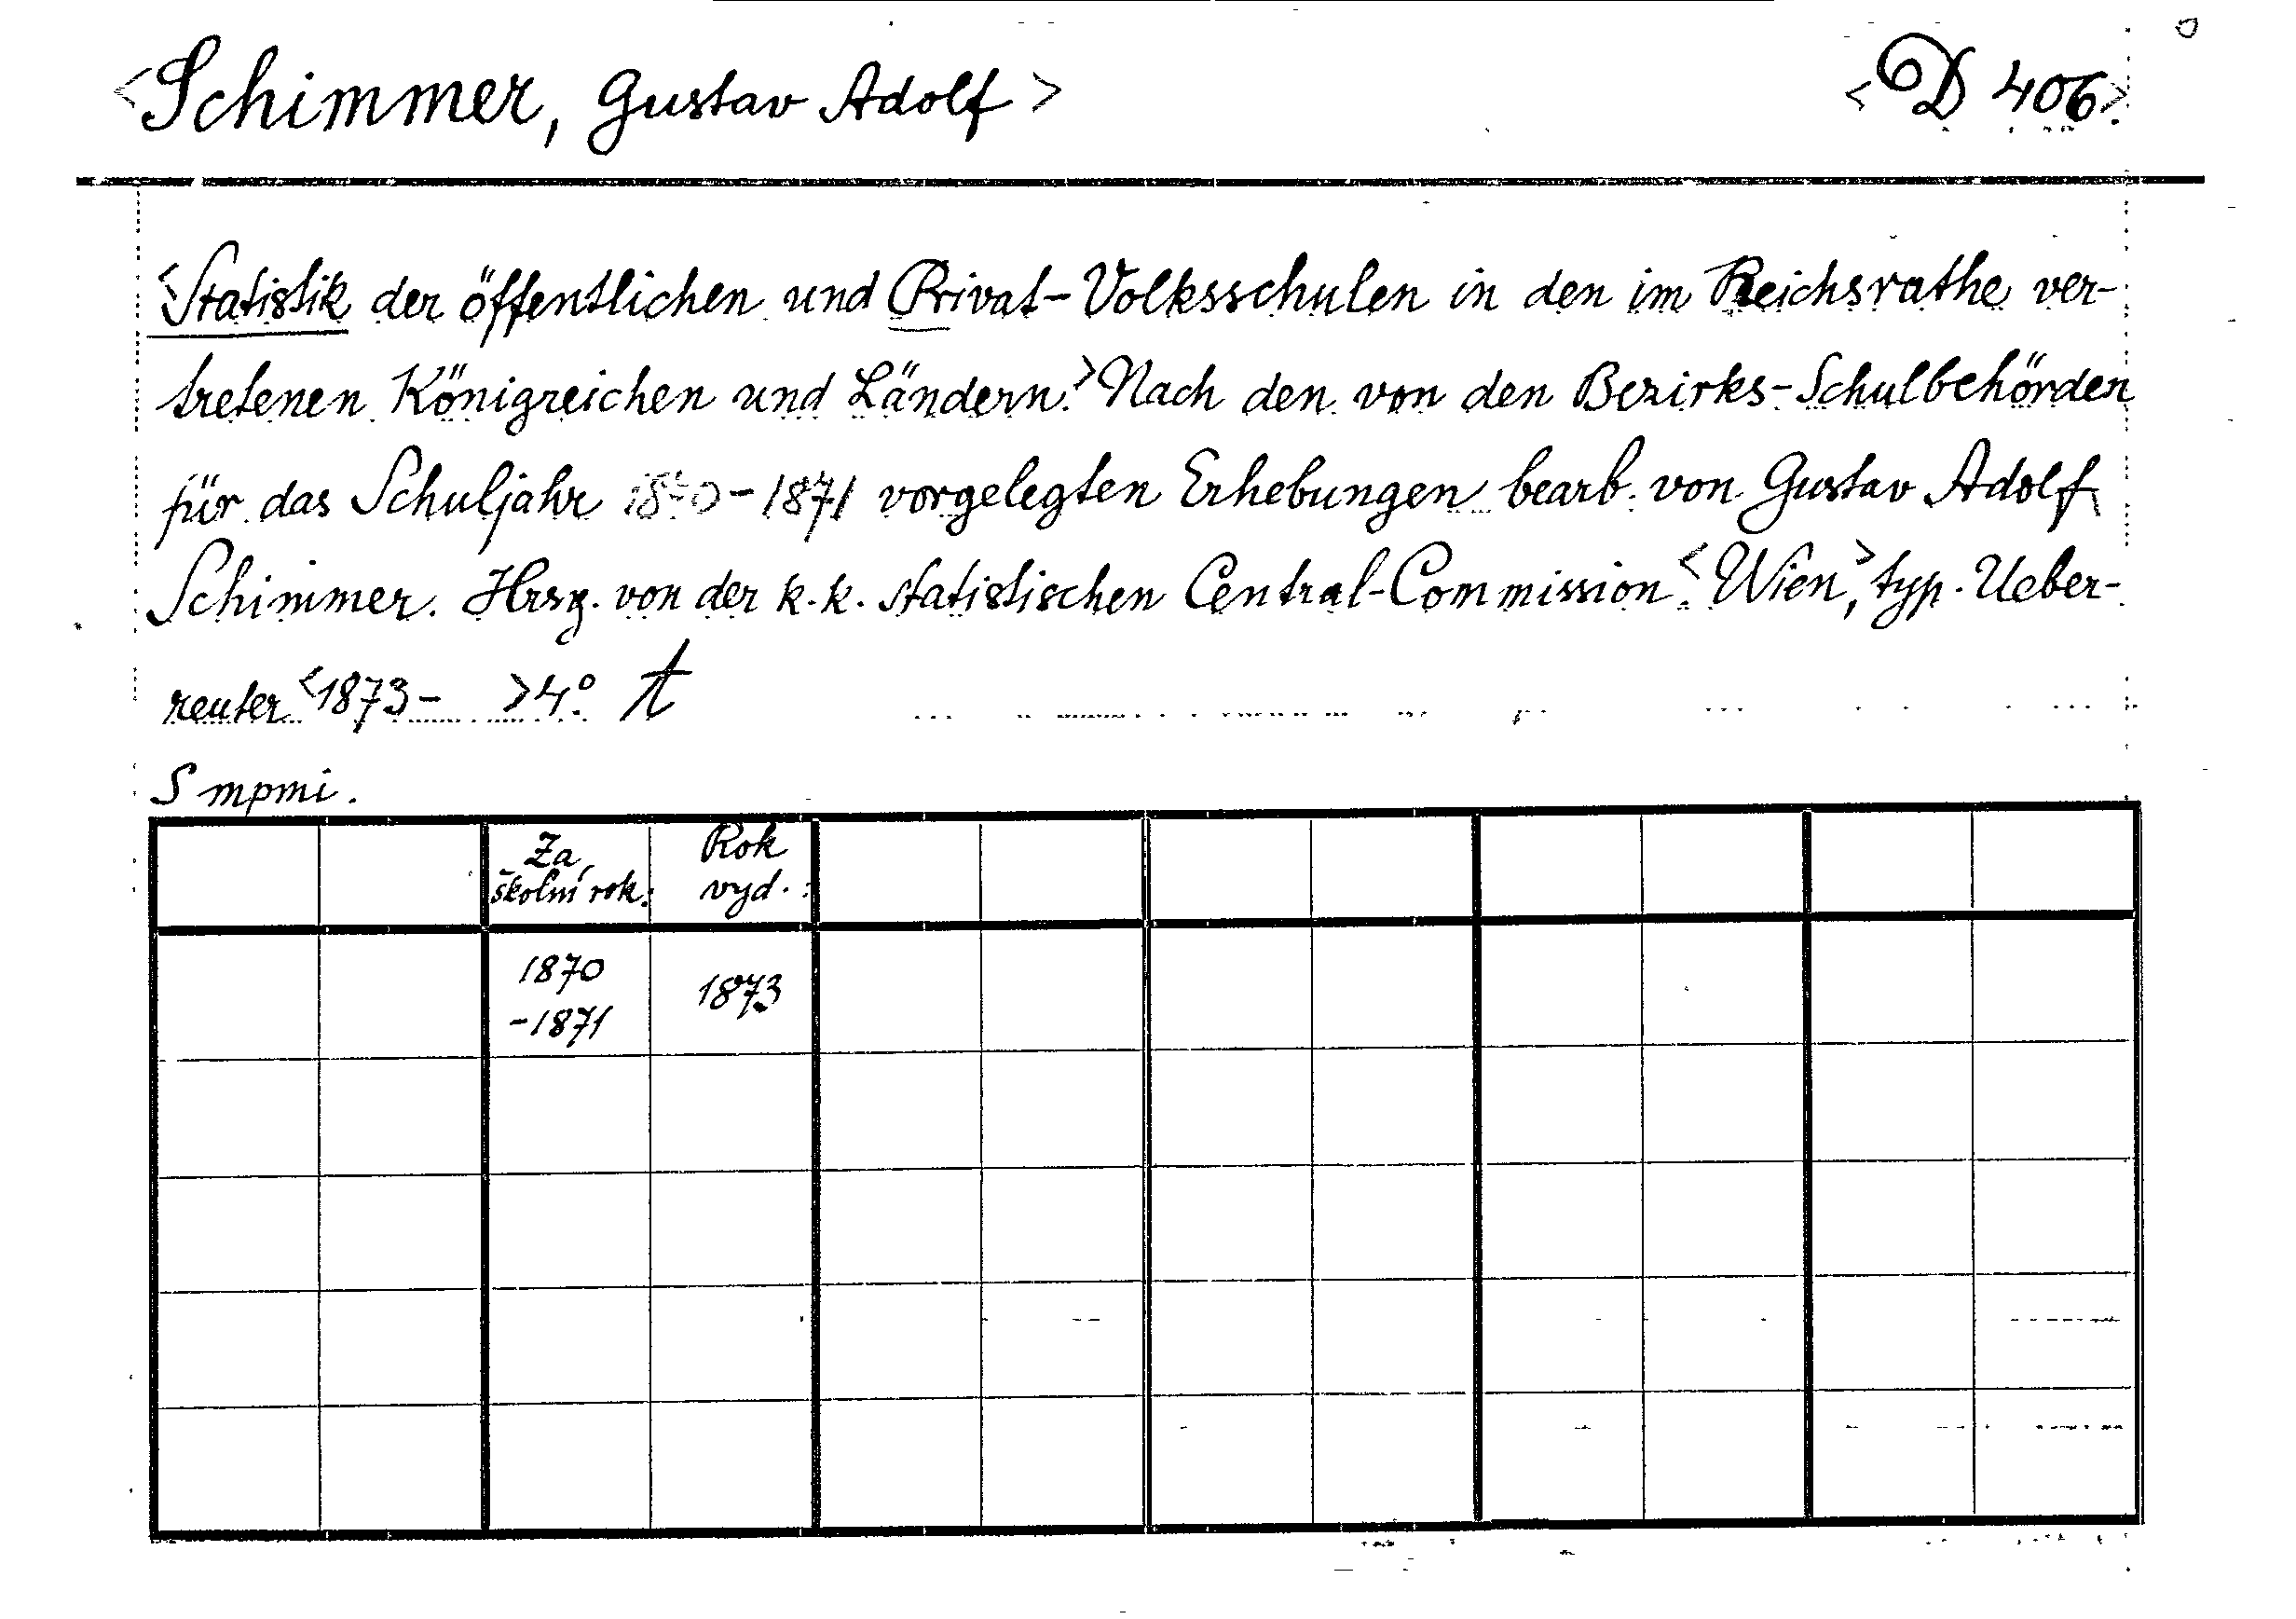 <Schimmer, Gustav Adolf> <D 406>
<Statistik der öffentlichen und Privat-Volksschulen in den im Reichsrathe ver-
tretenen Königreichen und Ländern.> Nach den von den Bezirks-Schulbehörden
für das Schuljahr 1870-1871 vorgelegten Erhebungen bearb. von Gustav Adolf
Schimmer. Hrsg. von der k.k. statistischen Central-Commission. <Wien,> typ. Ueber-
reuter <1873- > 4° t
S mpmi.
Za školní rok: Rok vyd.:
1870
-1871 1873